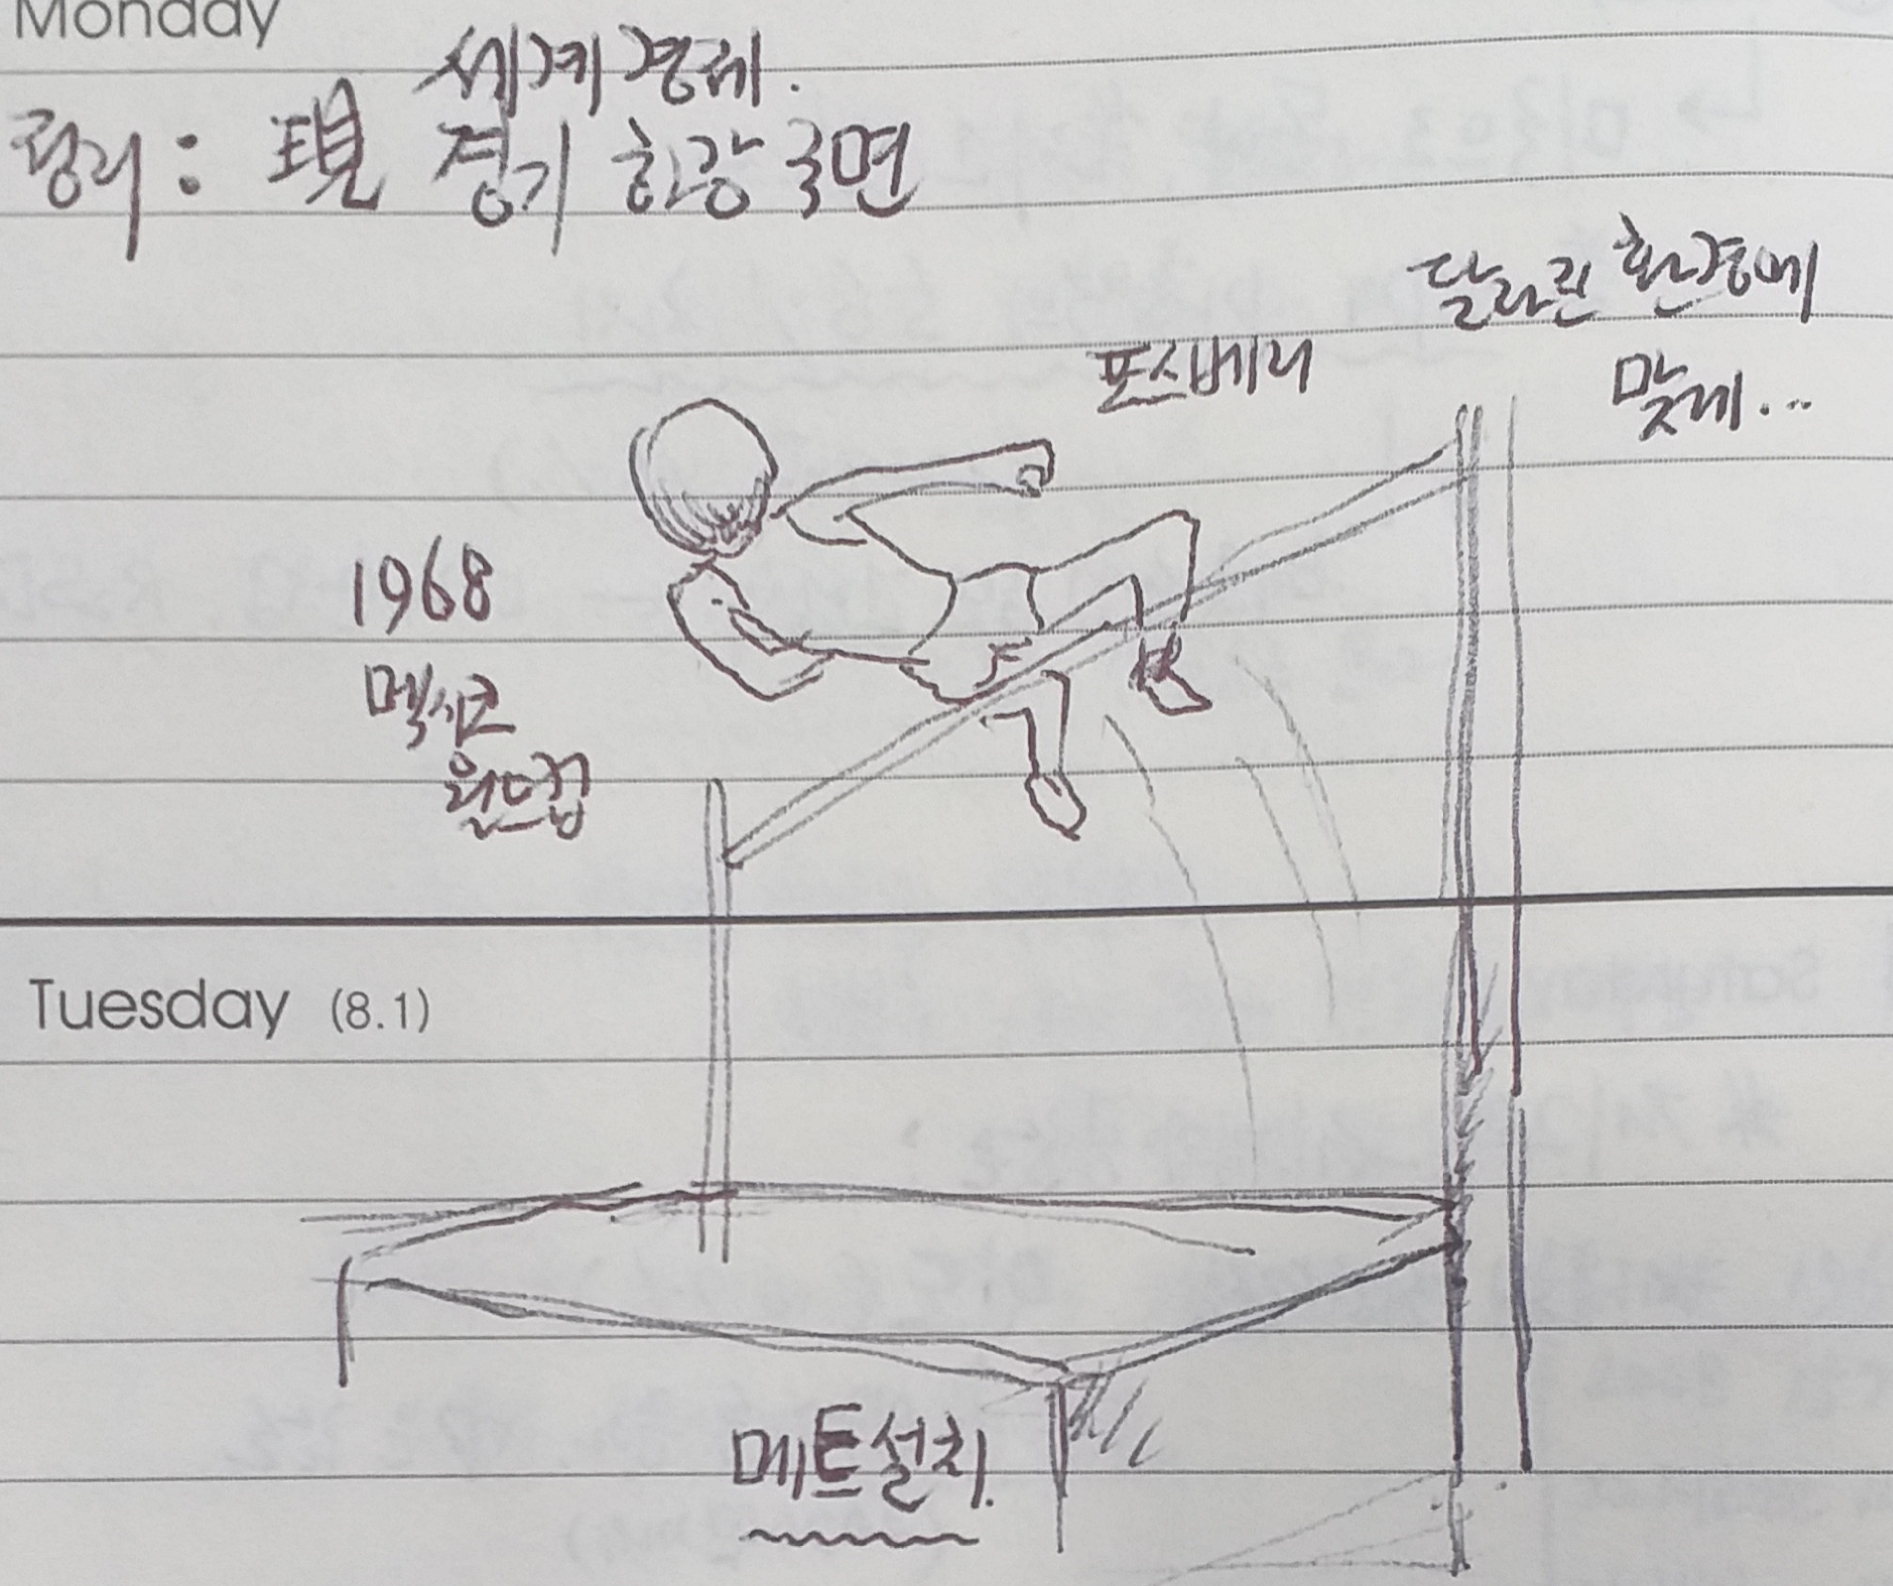 Monday
세계경제.
정리: 現 경기 하강 국면
달라진 환경에
맞게...
포스베리
1968
멕시코
월드컵
Tuesday (8.1)
메트설치.